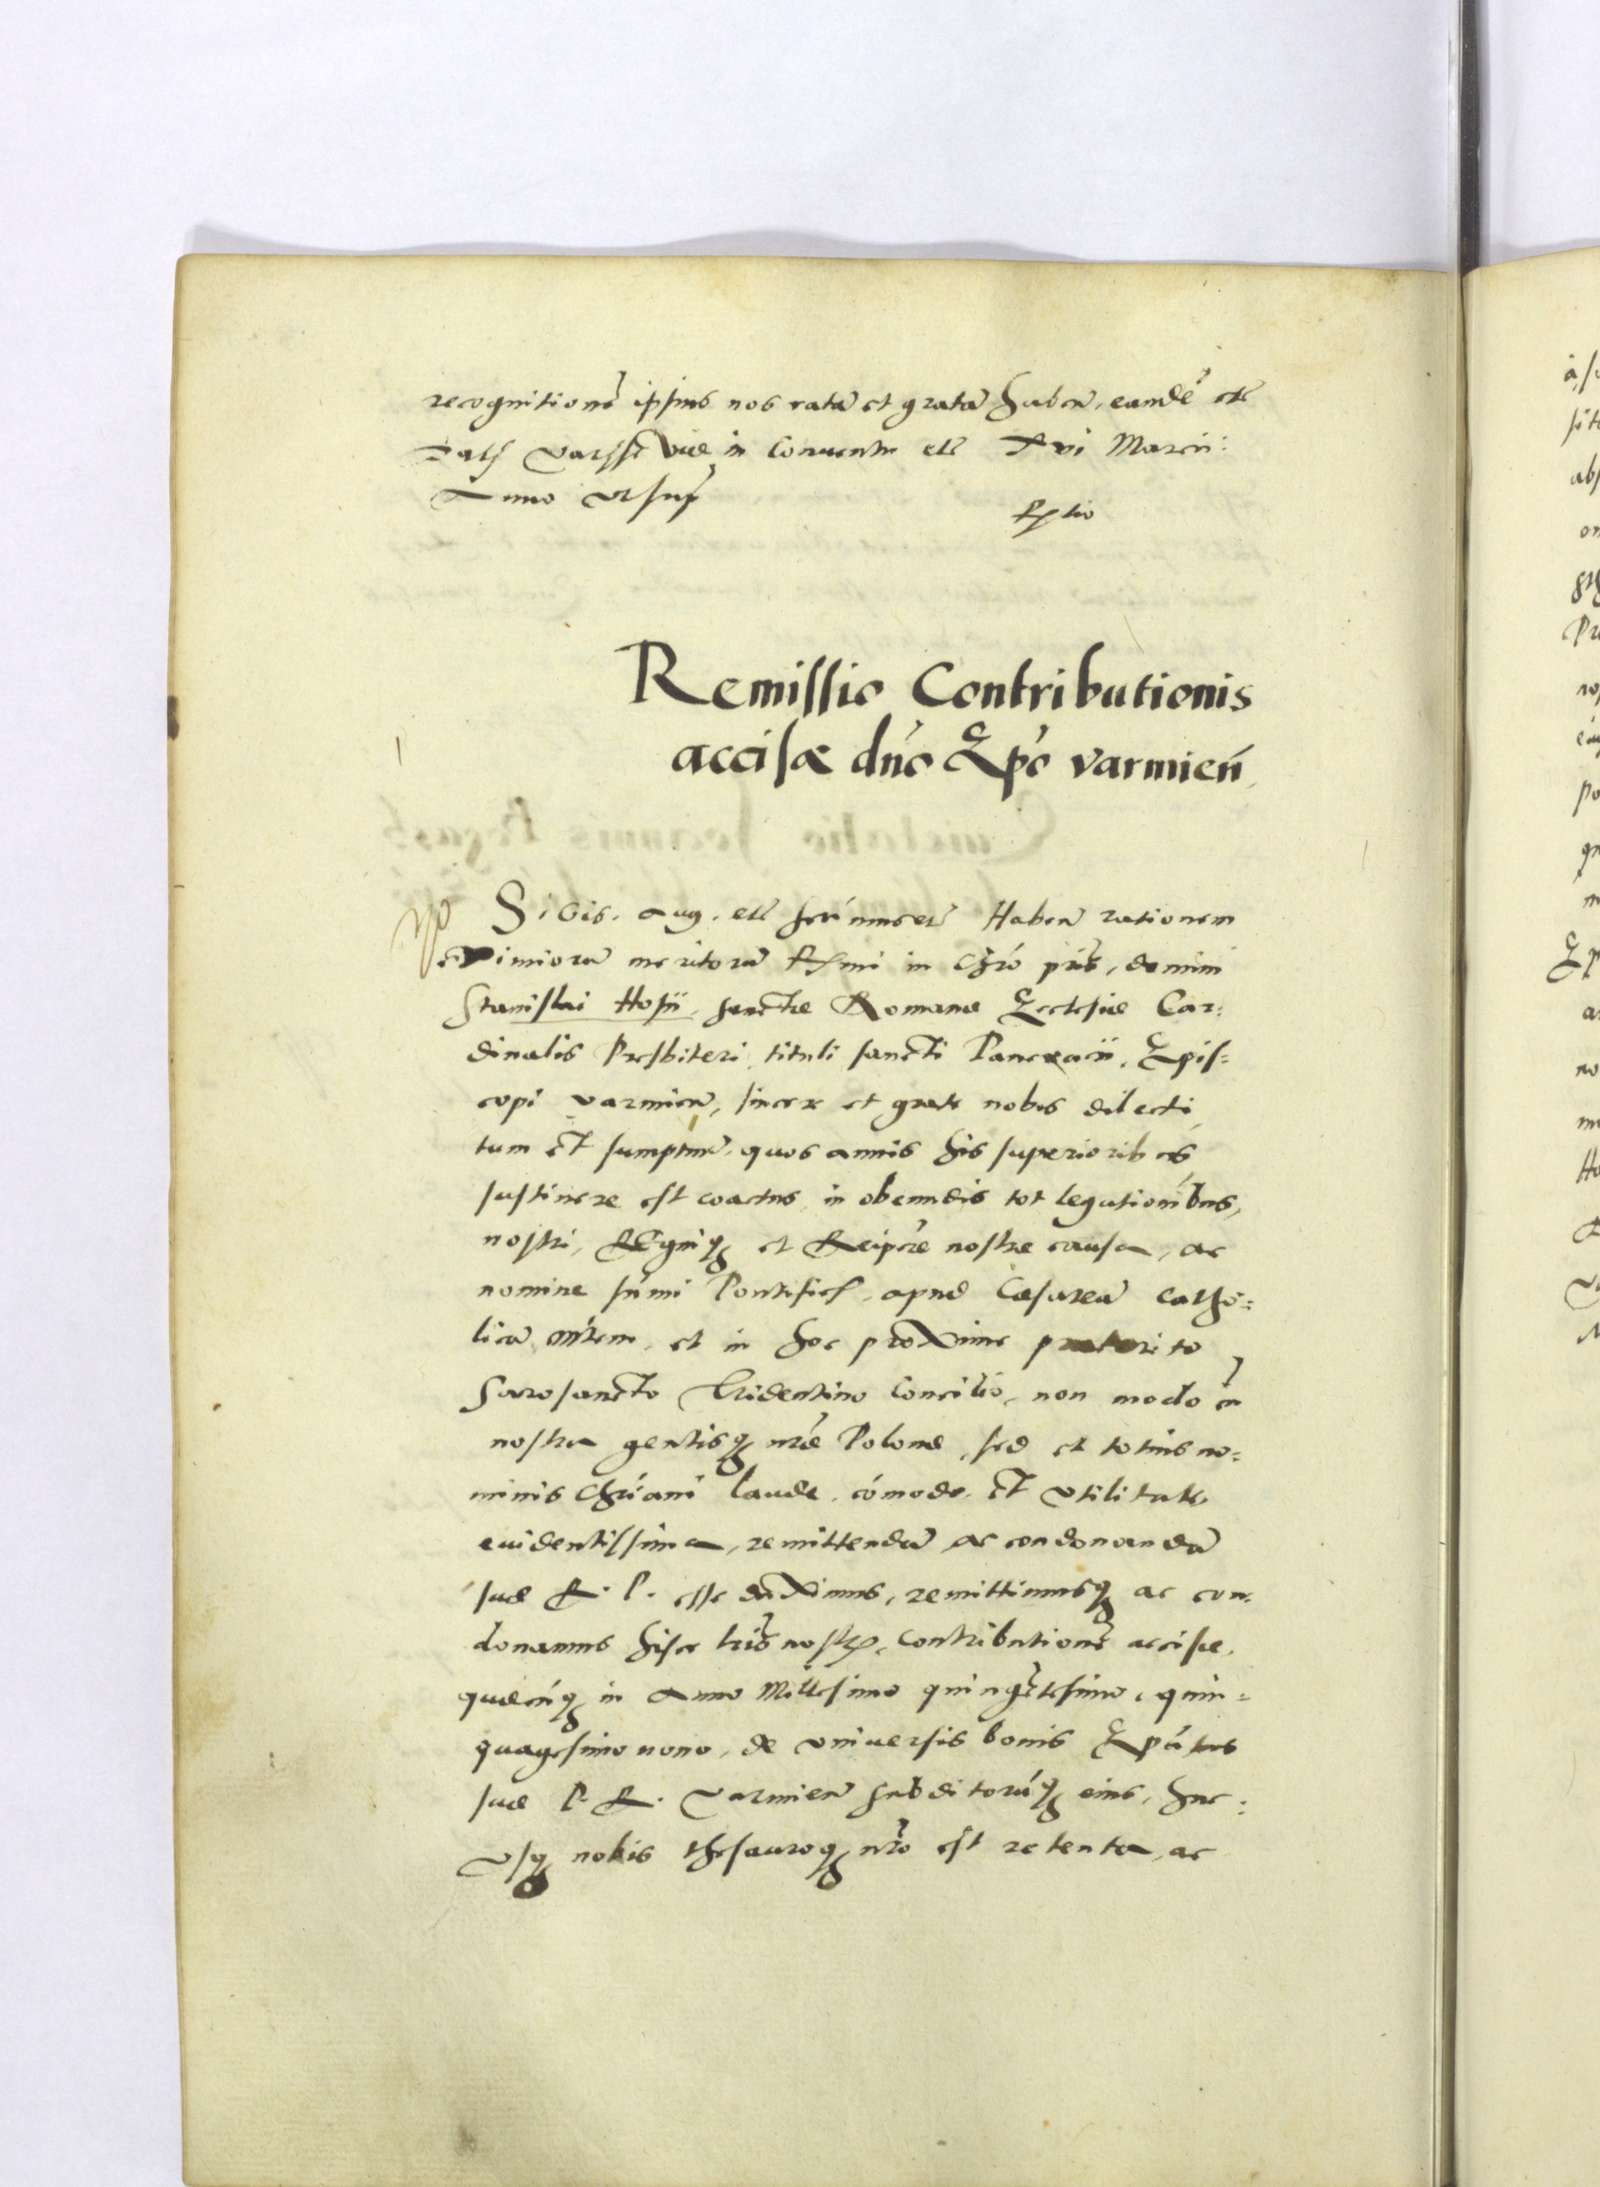 recognitionē ipsius nos ratā et gratā habēn, eandē etć
Dat Varssoviæ in Conuentu etć xvi Marcii:
Anno vt sup
Rptio
Remissio Contributionis
accisæ dńo Epó varmień
Sigis. Aug. etć significamus etć Habēn rationem
eximiorū meritorū Rsmi in Chró pris, domini
Stanislai Hosii, sanctæ Romanæ Ecclesiæ Car:
dinalis Presbiteri, tituli sancti Pancracii, Epis=
copi varmień, sincere et grate nobis dilecti,
tum et sumptuū, quos annis his superioribus
sustinere est coactus, in obeundis tot legationibus,
nostri, Regniq et Reipcæ nostræ causa, ac
nomine sūmi Pontificis, apud Cæsareā Catho=
licā Mtem, et in hoc proxime præterito
Sacrosancto Tridentino Concilio, non modo cū
nostra gentisq nræ Polonæ, sed et totius no=
minis Chriani laude, cómodo et vtilitate
euidentissima, remittendā ac condonandā
suæ R. P. esse duximus, remittimusq ac con=
donamus hisce lris nostris, contributionē accisæ,
quæcūq in Anno Millesimo quingētesimo, quin=
quagesimo nono, de vniuersis bonis Epātus
suæ P. R. Varmień subditorūq eius, huc:
vsq nobis thesauroq nró est retenta, ac